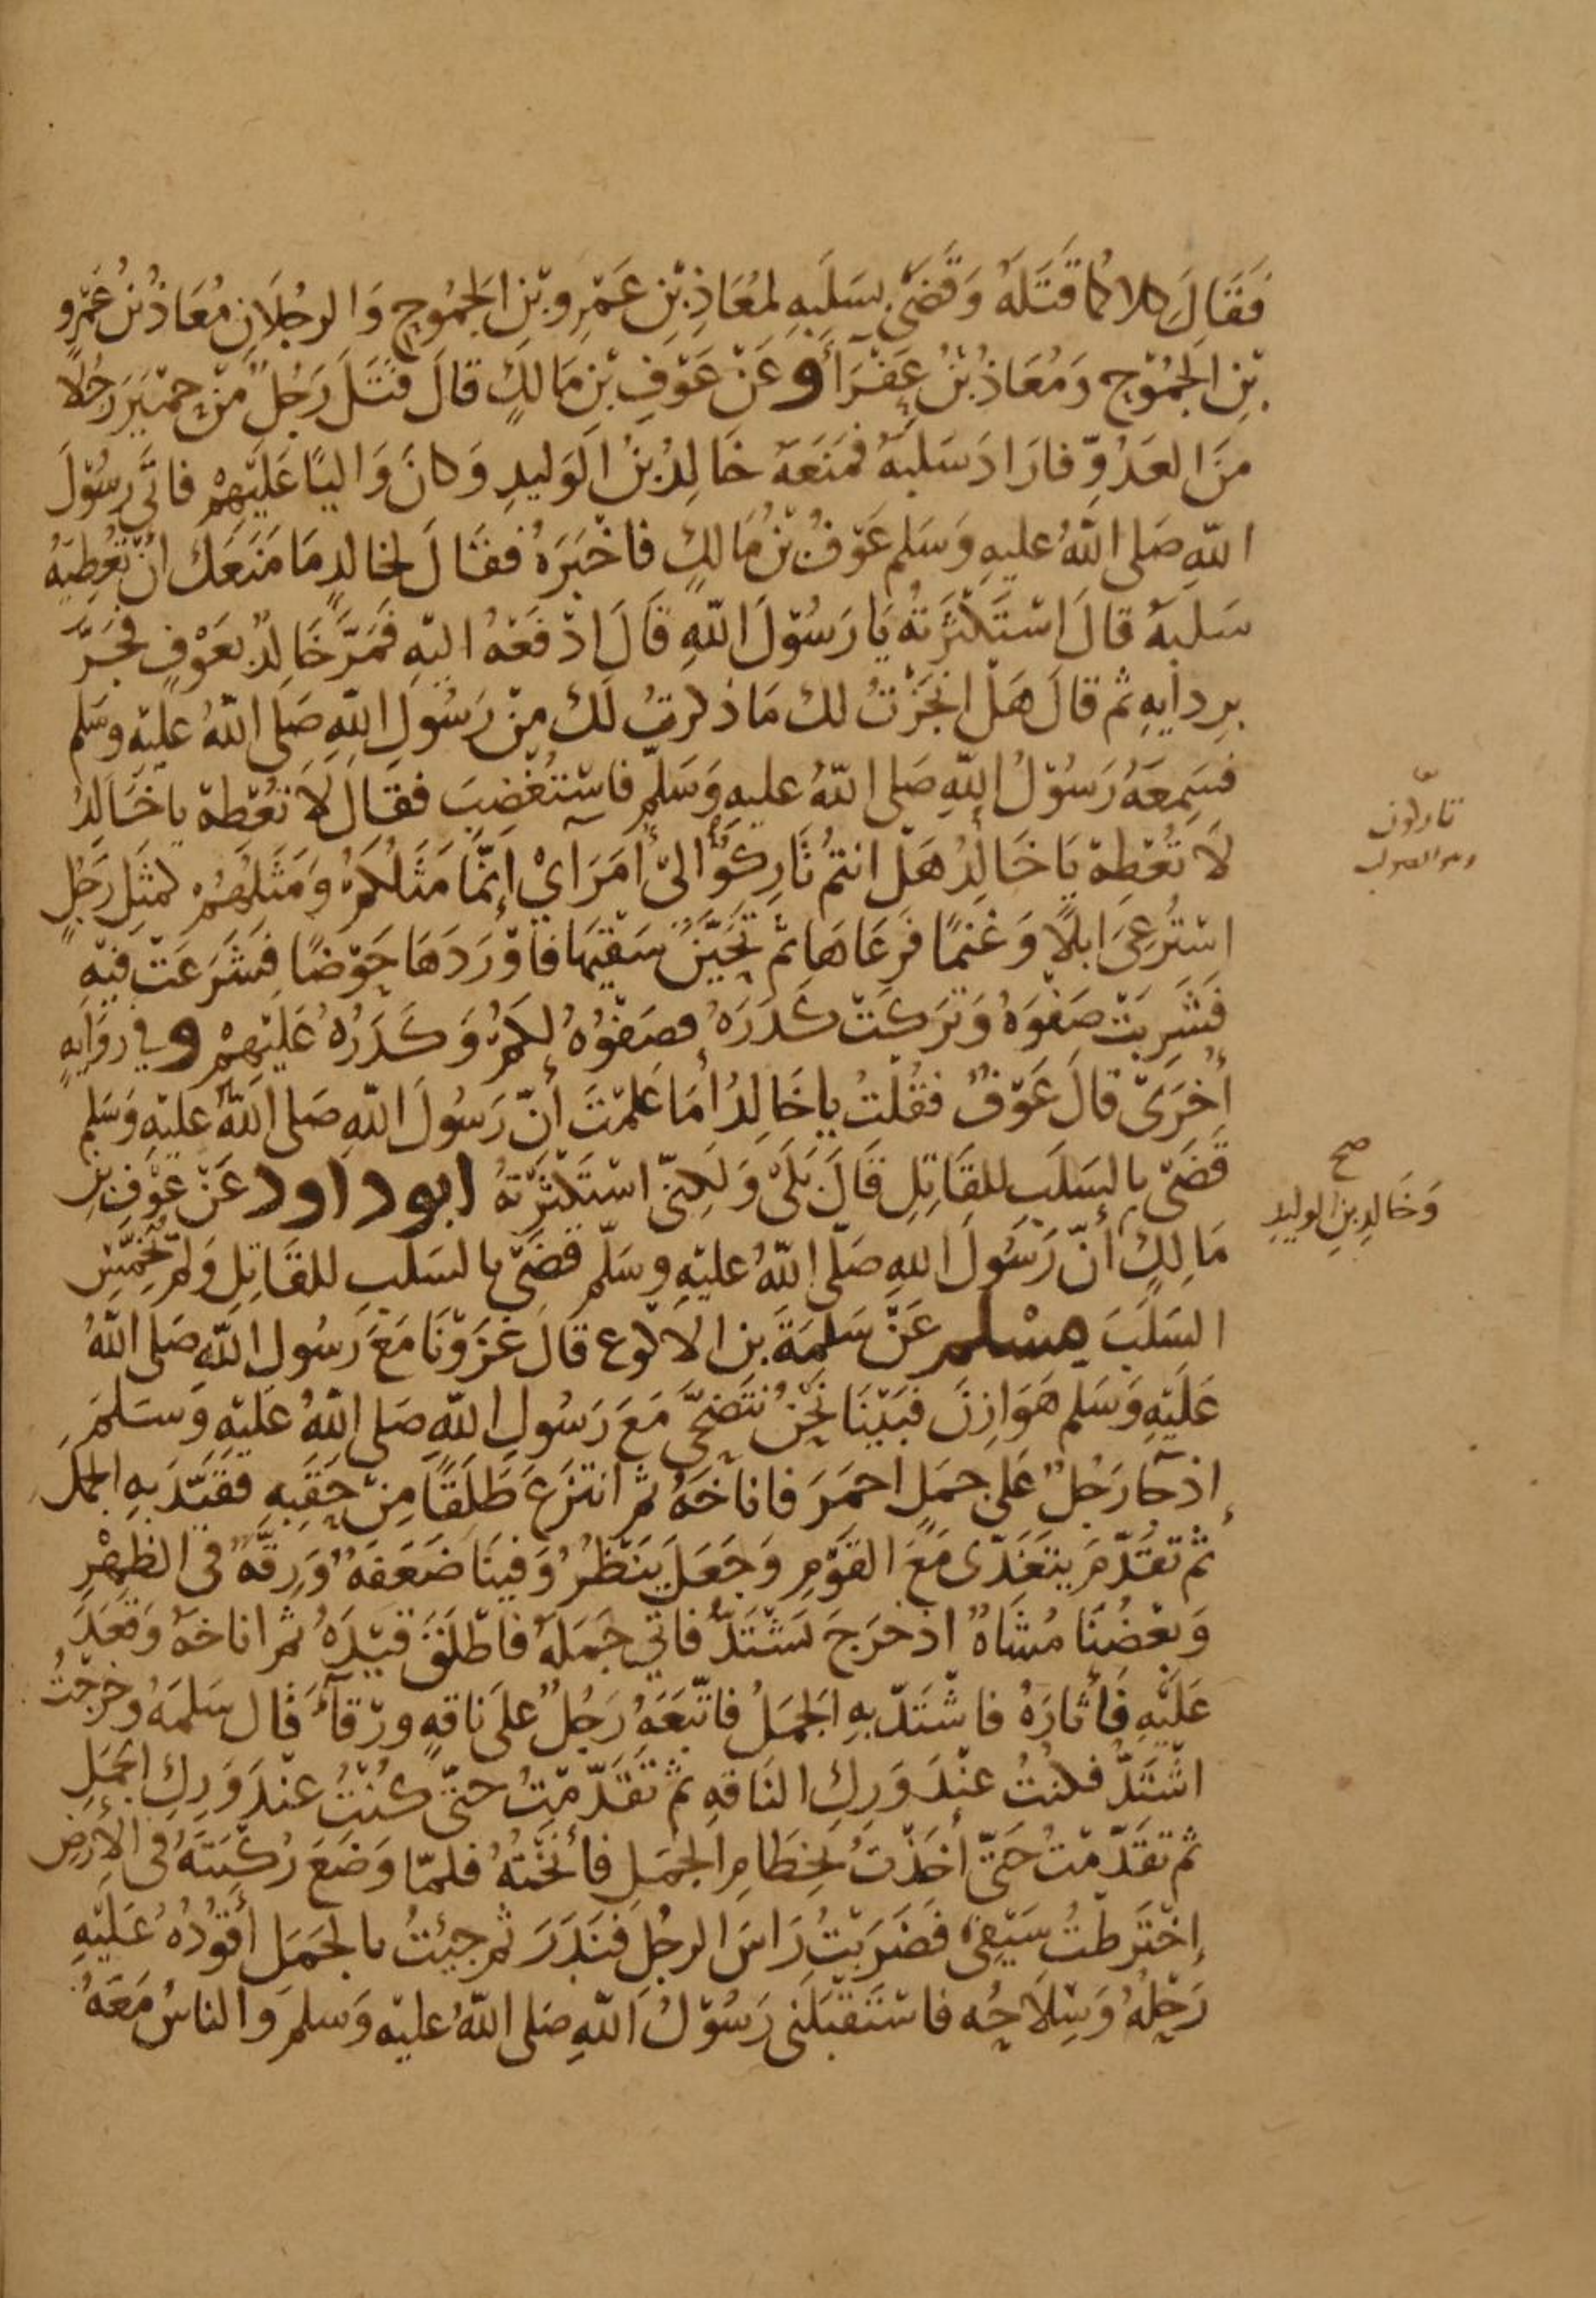 فَقَالَ كلاكُمَا قَتَلَهُ وَقَضَى بِسَلَبِهِ لمُعَاذِ بْنِ عَمْرِو بْنِ الجَمُوحِ وَالرجُلَانِ مُعَاذُ بْنُ عَمْرِو
بْنِ الجَمُوْحِ وَمُعَاذُ بْنُ عَفْرَاَ وعَنْ عَوْفِ بْنِ مَالكٍ قالَ قَتَلَ رَجُلٌ مِّنْ حِمْيَرَ رَجُلًا
مِنَ العَدُوِّ فارَادَ سَلَبَهُ فَمَنَعَهُ خَالِدُ بْنُ الوَليدِ وَكانَ وَاليًا عَلَيْهِمْ فاتَى رَسُوْلَ
اللّهِ صَلى اللّهُ عليهِ وَسَلم عَوْفُ بْنُ مَالكٍ فاخْبَرَهُ فقَالَ لخالدٍ مَا مَنَعَكَ انْ تُعْطِيَهُ
سَلَبَهُ قالَ اسْتَكْثَرْتهُ يَا رَسُوْلَ اللّهِ قَالَ ادْفَعْهُ اليْهِ فَمَرَّ خَالِدٌ بعَوْفٍ فجَرَّ
بِردايهِ ثم قالَ هَلْ انجَزْتُ لك مَا ذكرتُ لَكَ مِنْ رَسُولِ اللّهِ صَلى اللّهُ عليْهِ وسَلم
فسَمِعَهُ رَسُوْلُ اللّهِ صَلى اللّهُ عليهِ وَسَلّم فاسْتُغْضِبَ فقَالَ لَا تُعْطِهْ يا خَالِدُ
لَا تُعْطِهْ يَا خَالِدُ هَلْ انتمْ تَارِكُوْا الىْ أُمَرَآيْ إنمَّا مَثَلُكمْ وَمَثَلُهُمْ كمثَلِ رَجُلٍ
اسْتُرْعِىَ ابلًا وَغنمًا فَرَعَاهَا ثم تحَيَّنَ سَقْيَهَا فاوْرَدَهَا حَوْضًا فشَرَعَتْ فيْهِ
فشَرِبَتْ صَفْوَهُ وَتَرَكَتْ كَدَرَهُ فصَفْوُهُ لكمْ وَكَدَرُهُ عَلَيْهِمْ وفي روَايهٍ
أُخْرَىْ قالَ عَوْفٌ فقُلْتُ يا خَالِدُ أمَا عَلِمْتَ أنّ رَسُولَ اللّهِ صَلى اللّهُ عليْهِ وَسَلم
قَضَىْ بالسَلَبِ للقَاتِلِ قَالَ بَلَىْ وَلَكِنّى اسْتَكْثَرْتهُ ابو داود عَنْ عَوْفِ بْنِ
مَالِكٍ أنّ رَسُولَ اللهِ صَلّى اللّهُ عليْهِ وسَلّم قَضَىْ بالسَلَبِ للقَاتِلِ وَلمْ يُخَمِّسِ
السَلَبَ مسْلم عَنْ سَلمَةَ بن الاكوع قَالَ غَزَوْنَا مَعَ رَسُولِ اللّهِ صَلى اللّهُ
عَلَيْهِ وَسَلم هَوَازِنَ فبَيْنَا نَحْنُ نَتَضَحَّى مَعَ رَسُولِ اللّهِ صَلى اللّهُ عَلَيْهِ وَسَلمَ
إذ جَآ رَجُلٌ عَلى جمَلٍ احمَرَ فاناخَهُ ثم انتزَعَ طَلَقًا مِنْ حَقَبِهِ فقَيَّدَ بهِ الجمل
ثم تقَدّمَ يتَغَدّى مَعَ القَوْمِ وَجَعَلَ يَنْظُرُ وَفينَا ضَعَفهٌ وَرِقّهٌ فى الظهْرِ
وَبعْضُنَا مُشَاهٌ اذ خرَجَ يَشْتَدّ فاتى جمَلهُ فاطْلَقَ قيْدَهُ ثم اناخهُ وَقعَدَ
عَلَيْهِ فَأثارَهُ فاشْتَدّ بهِ الجمَلُ فاتّبَعَهُ رَجُلٌ على نَاقهٍ ورْقآءَ قَال سَلمَهُ وخَرَجْتُ
اشْتَدّ فكنتُ عنْدَ وَرِكِ النَاقهِ ثم تَقَدّمْتُ حتىّ كُنْتُ عنْدَ وَرِكِ الجَمَلِ
ثم تقَدّمْتُ حَتّى أخَذْتُ بخِطَامِ الجمَلِ فأنَخْتهُ فلمّا وَضَعَ رُكْبَتَهُ فى الأرْضِ
إخْتَرَطْتُ سَيْفِىْ فَضَرَبْتُ رَاسَ الرجُلِ فنَدَرَ ثم جيئتُ بالجَمَلِ أقُوْدُهُ عَلَيْهِ
رَحْلهُ وَسِلَاحُه فاسْتَقْبَلَنى رَسُوْلُ اللّهِ صَلى اللّهُ عليْه وَسلمَ وَالناسُ مَعَهُ
تاركون
وهو الصواب
صح
وَخَالدِ بنِ الوليدِ